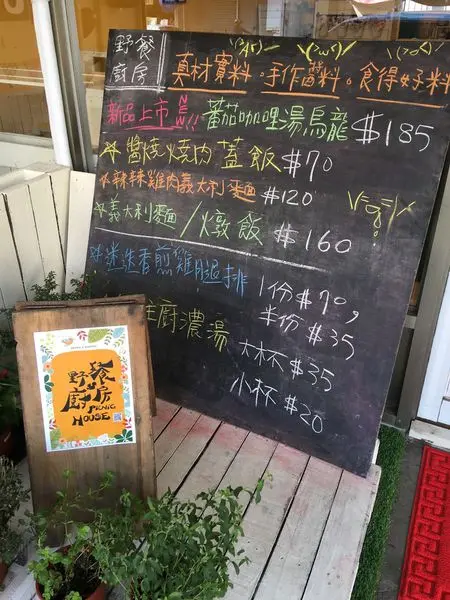 野餐
廚房
真材實料。手作醬料。食得好料
新品上市 NEW!! 蕃茄咖哩湯烏龍 $185
醬燒燒肉蓋飯 $70
辣辣雞肉義大利麵 $120
義大利麵/燉飯 $160
迷迭香煎雞腿排 1份 $70,
半份 $35
主廚濃湯 大杯 $35
小杯 $20
野餐
廚房
PICNIC
HOUSE